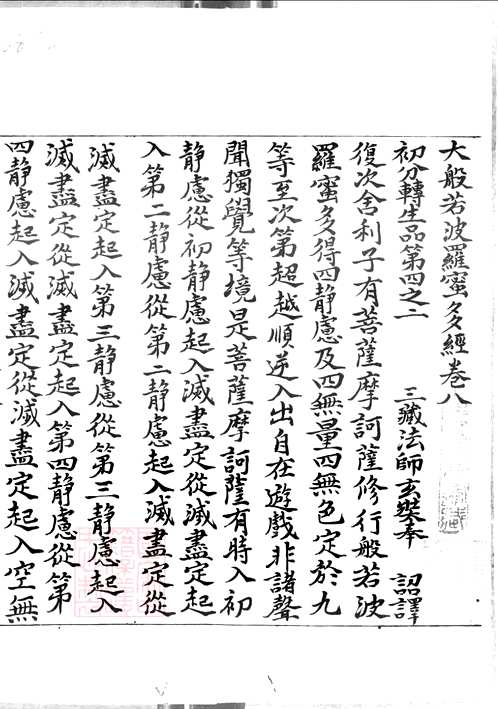 大般若波羅蜜多經卷八
初分轉生品第四之二 三藏法師玄奘奉 詔譯
復次舍利子有菩薩摩訶薩修行般若波
羅蜜多得四靜慮及四無量四無色定於九
等至次第超越順逆入出自在遊戲非諸聲
聞獨覺等境是菩薩摩訶薩有時入初
靜慮從初靜慮起入滅盡定從滅盡定起
入第二靜慮從第二靜慮起入滅盡定從
滅盡定起入第三靜慮從第三靜慮起入
滅盡定從滅盡定起入第四靜慮從第
四靜慮起入滅盡定從滅盡定起入空無